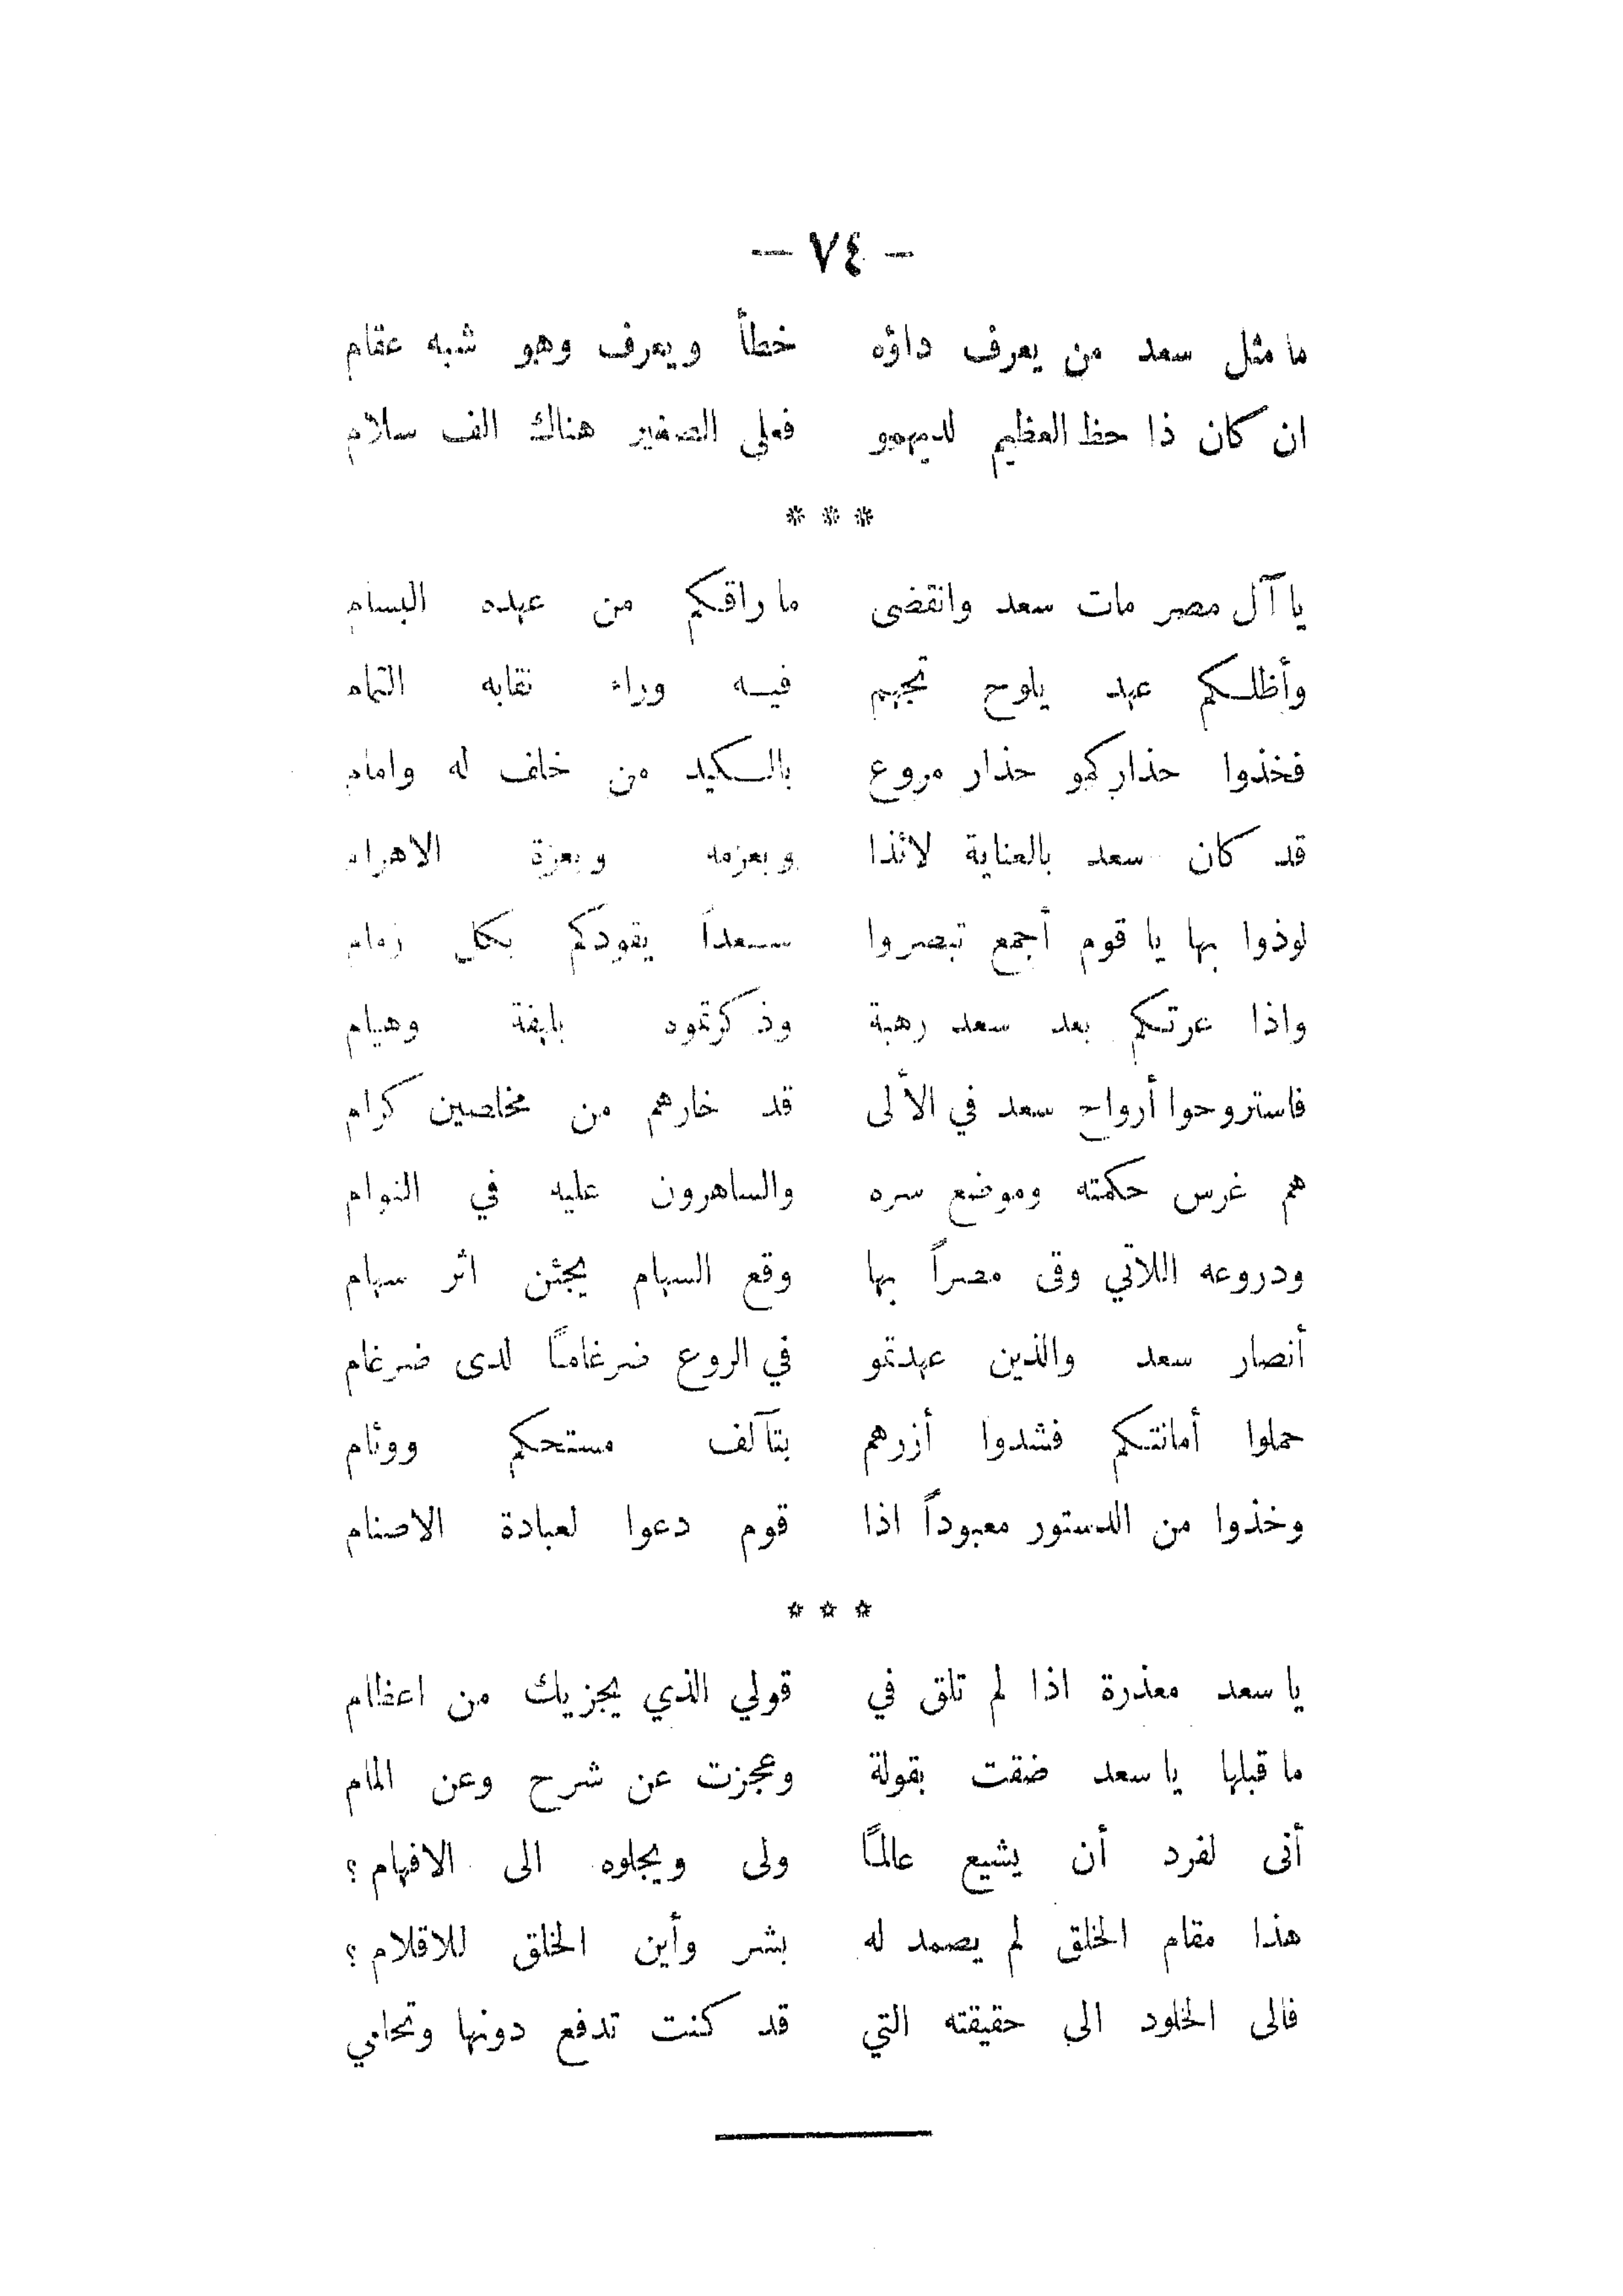 — ٧٤ —
ما مثل سعد من يعرف داؤه خطأ ويعرف وهو شبه عقام
ان كان ذا حظ العظيم لديهمو فعلى الصغير هناك الف سلام
* * *
يا آل مصر مات سعد وانقضى ما راقكم من عهده البسام
وأظلكم عهد يلوح تجهم فيه وراء نقابه التمام
فخذوا حذاركمو حذار مروع بالكيد من خلف له وامام
قد كان سعد بالعناية لائذا وبعزمه وبعزة الاهرام
لوذوا بها يا قوم أجمع تبصروا سعداً يقودكم بكل زمام
واذا عرتكم بعد سعد رهبة وذكرتموه بلهفة وهيام
فاستروحوا أرواح سعد في الألى قد خارهم من مخلصين كرام
هم غرس حكمته وموضع سره والساهرون عليه في النوام
ودروعه اللاتي وقى مصراً بها وقع السهام يجئن اثر سهام
أنصار سعد والذين عهدتمو في الروع ضرغاماً لدى ضرغام
حملوا أمانتكم فشدوا أزرهم بتآلف مستحكم ووئام
وخذوا من الدستور معبوداً اذا قوم دعوا لعبادة الاصنام
* * *
يا سعد معذرة اذا لم تلق في قولي الذي يجزيك من اعظام
ما قبلها يا سعد ضقت بقولة وعجزت عن شرح وعن المام
أنى لفرد أن يشيع عالماً ولى ويجلوه الى الافهام ؟
هذا مقام الخلق لم يصمد له بشر وأين الخلق للاقلام ؟
فالى الخلود الى حقيقته التي قد كنت تدفع دونها وتحامي